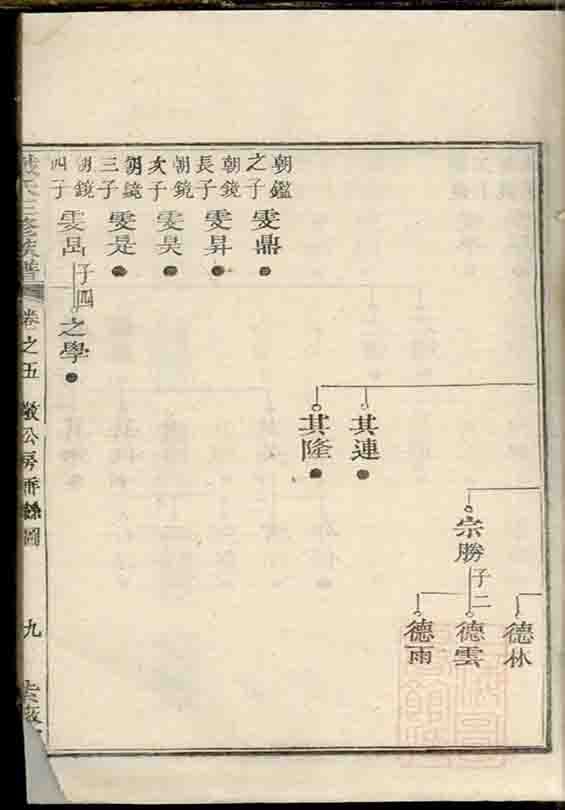 朝鑑之子
雯鼎
朝鏡長子
雯昇
朝鏡次子
雯昊
朝鏡三子
雯是
朝鏡四子
雯昌
子四
之學
其連
其隆
宗勝
子二
德林
德雲
德雨
氏三修族譜
卷之五
公房
圖
九